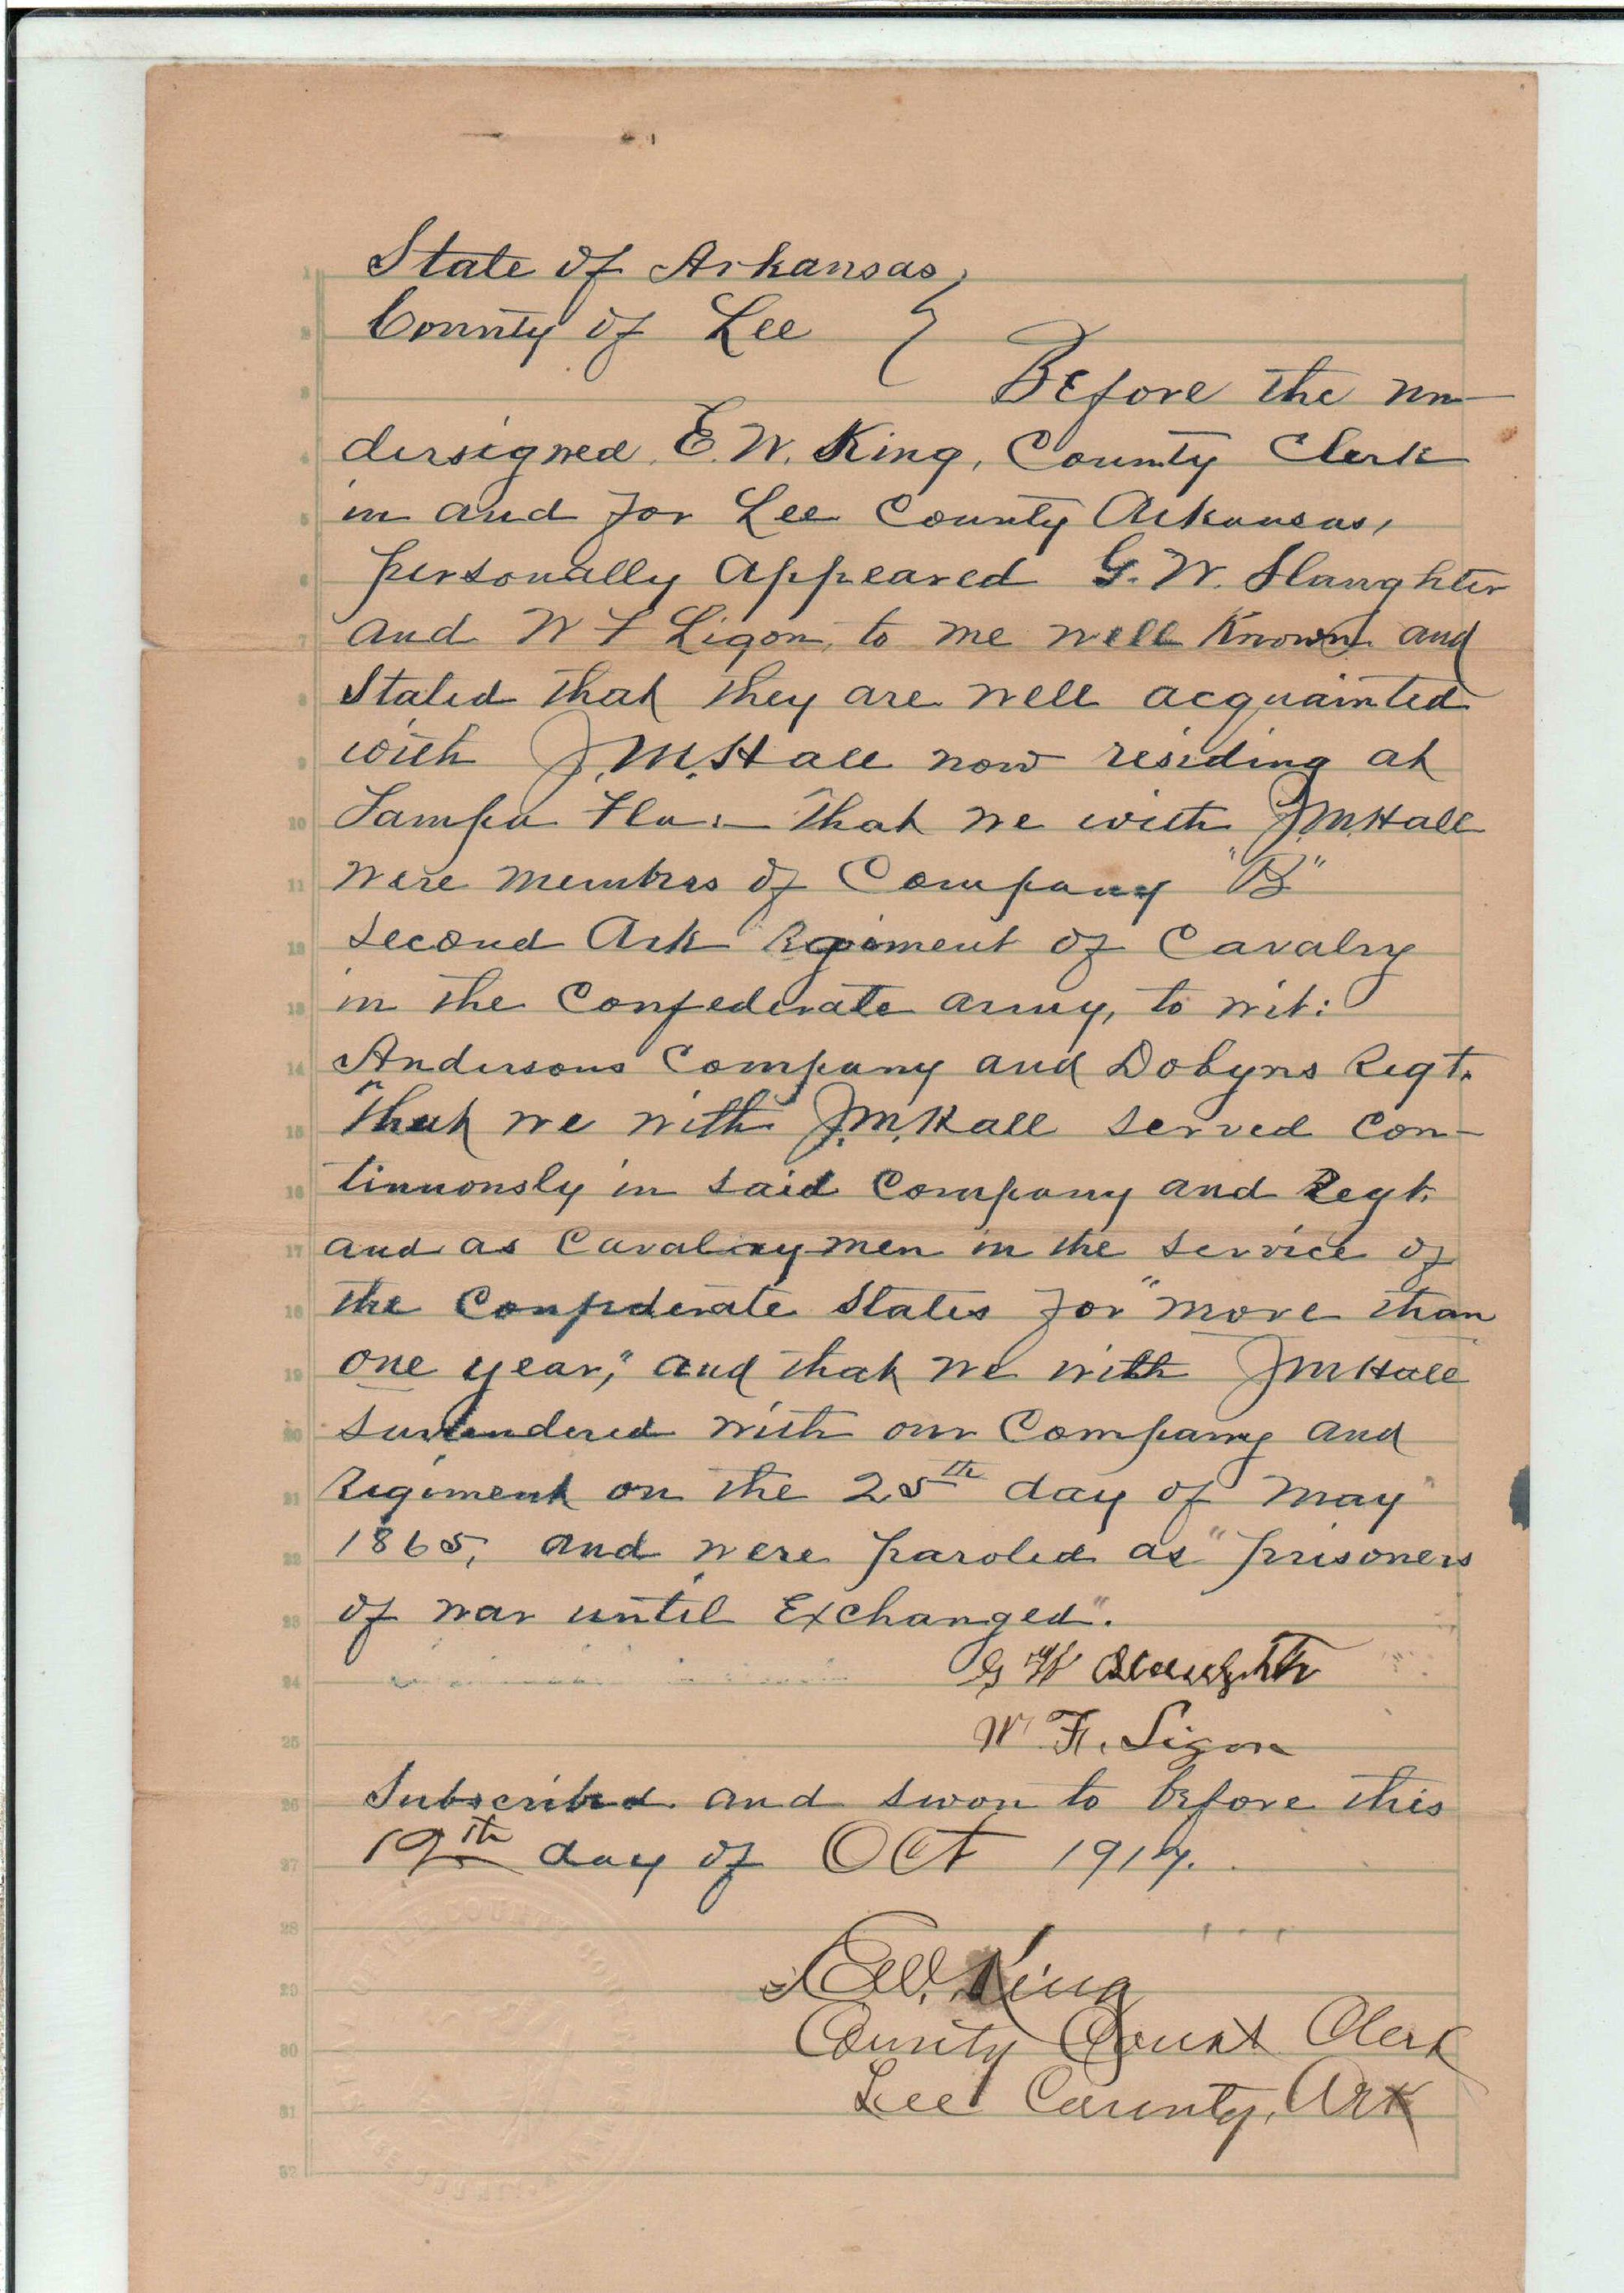 State of Arkansas,
County of Lee }
Before the un-
dersigned, E. W. King, County Clerk
in and for Lee County Arkansas,
personally appeared G. W. Slaughter
and W F Ligon, to me well known and
Stated that they are well acquainted
with J. M. Hall now residing at
Tampa Fla:— That we with J. M. Hall
were members of Company "B"
Second Ark Regiment of Cavalry
in the Confederate army, to wit:
Andersons Company and Dobyns Regt.
That we with J. M. Hall served con-
tinuously in said Company and Regt.
and as Cavalrymen in the service of
the Confederate States for "more than
one year," and that we with J M Hall
surrendered with our Company and
Regiment on the 25th day of May
1865, and were paroled as "prisoners
of war until Exchanged".
G W Slaughter
W. F. Ligon
Subscribed and sworn to before this
19th day of Oct 1914.
E. W. King
County Court Clerk
Lee County, Ark
1
2
3
4
5
6
7
8
9
10
11
12
13
14
15
16
17
18
19
20
21
22
23
24
25
26
27
28
29
30
31
32